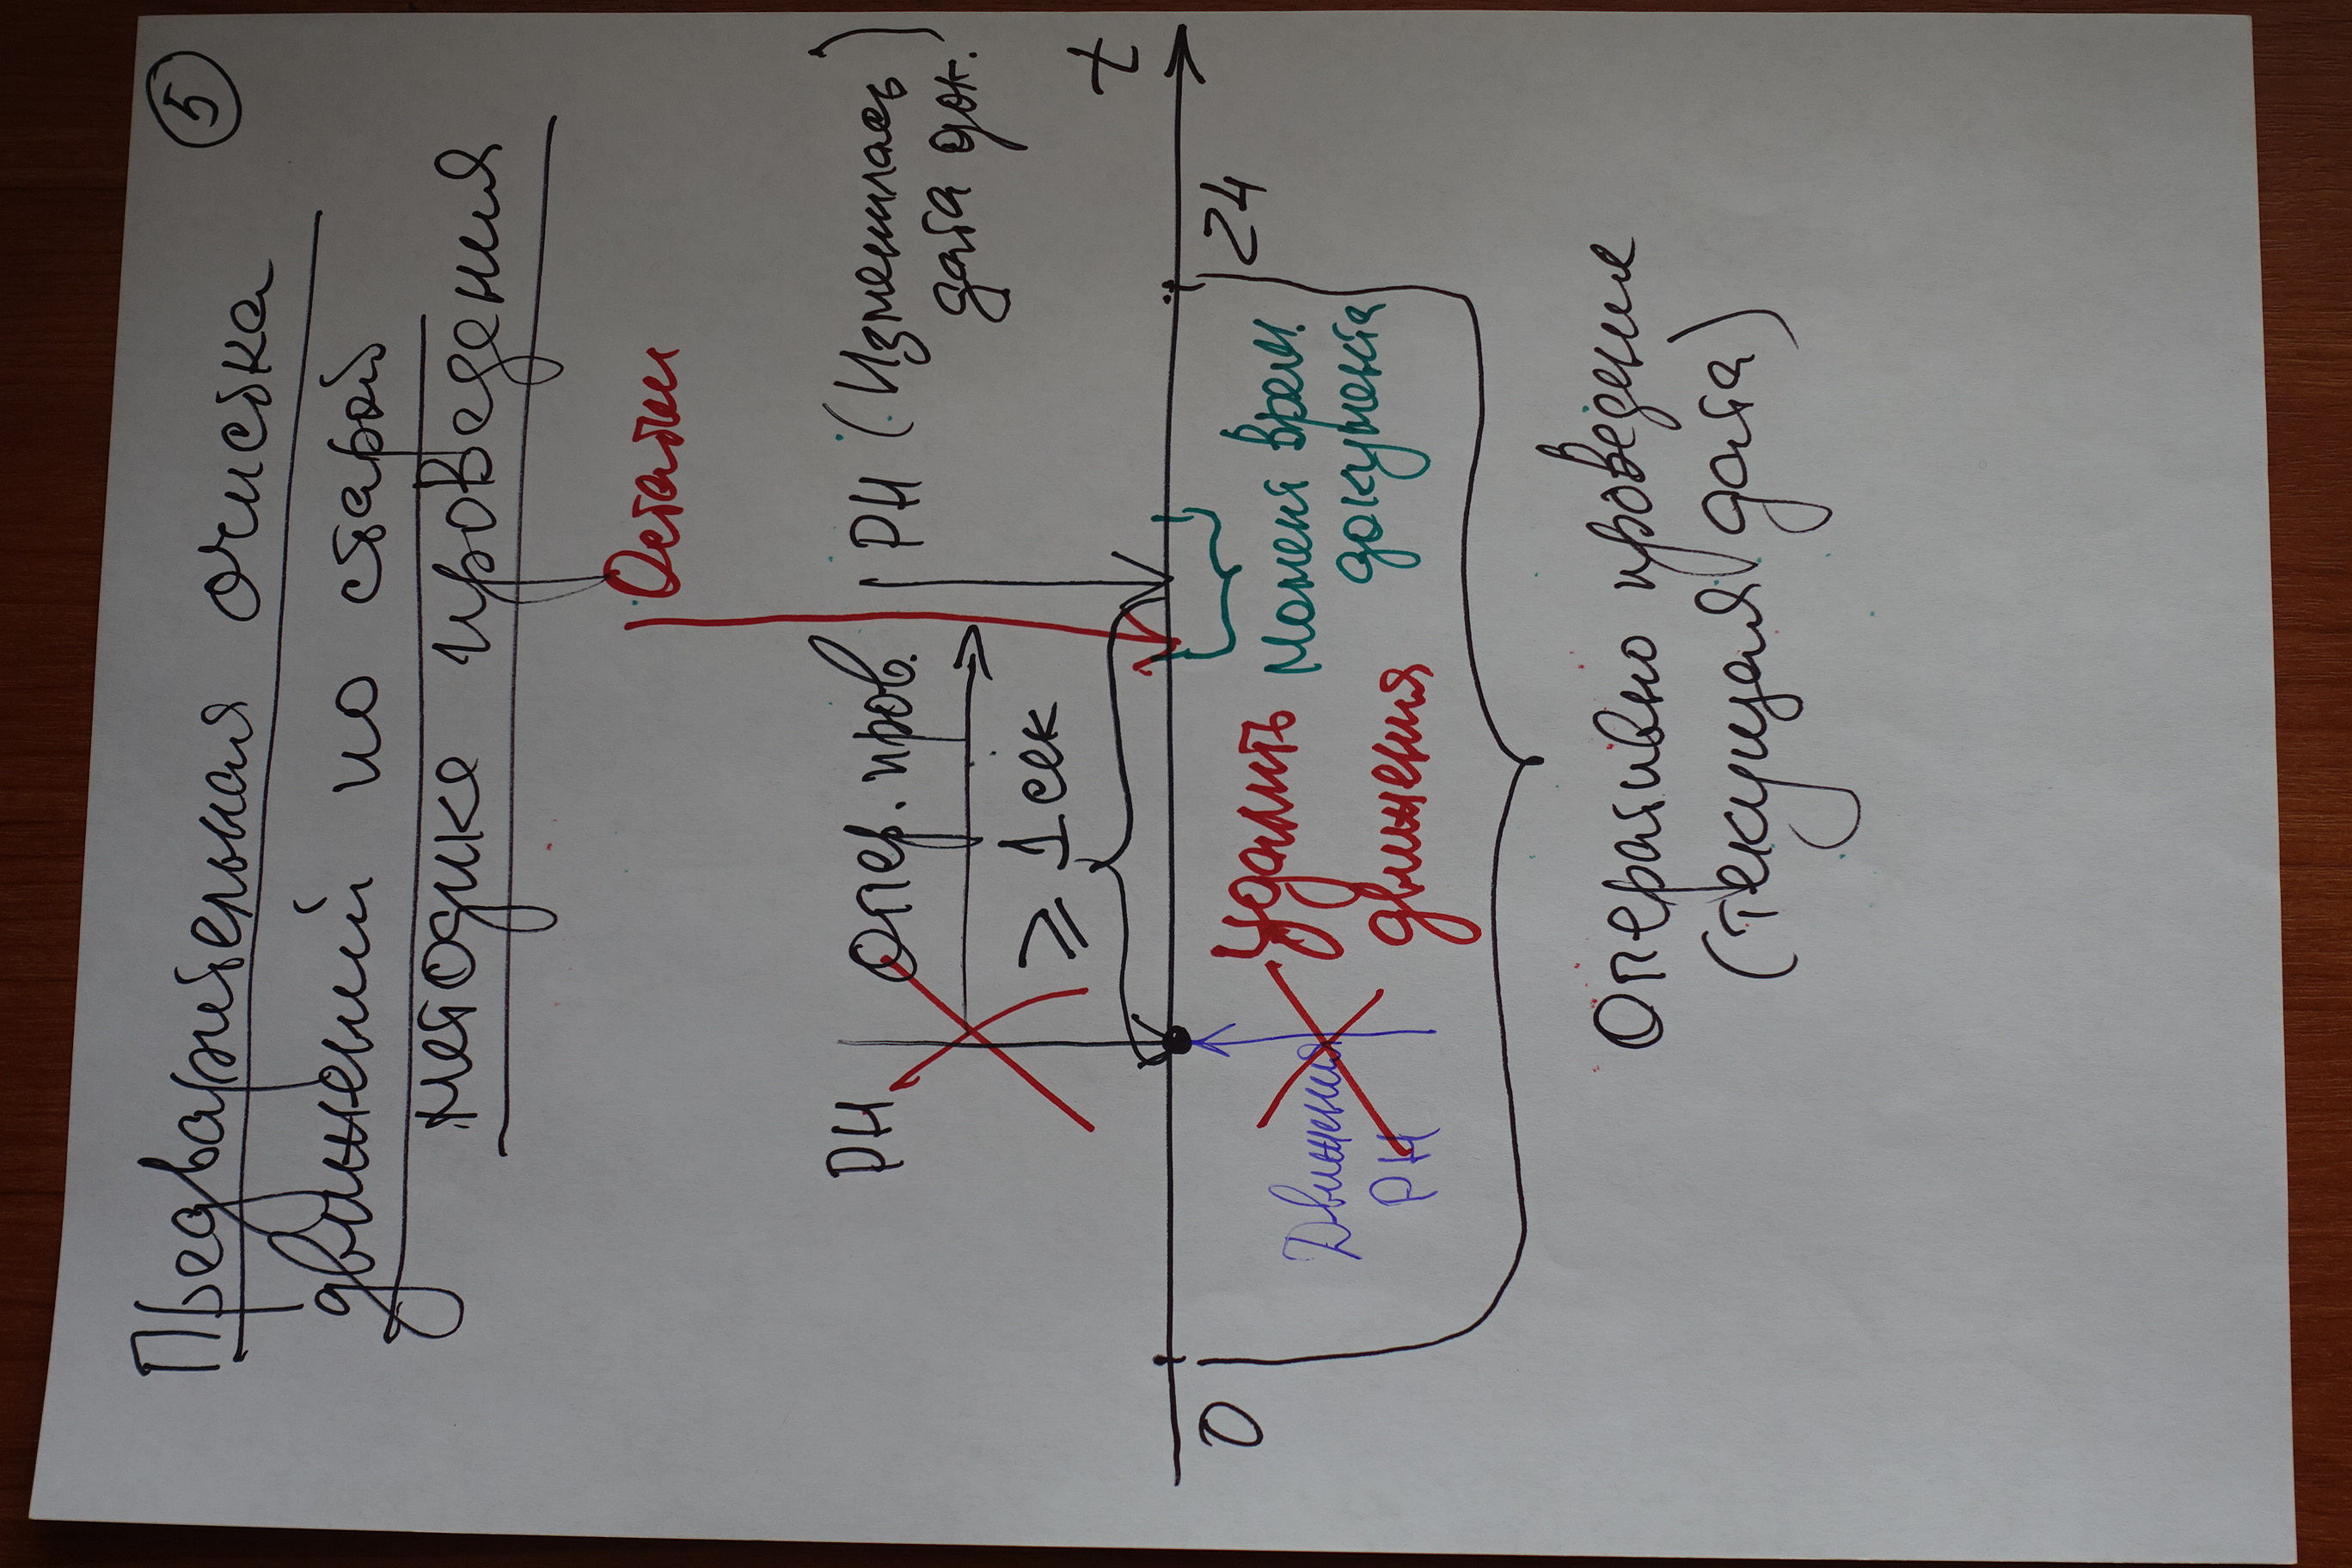 5
Предварительная очистка
движений по старой
методике проведения
Остатки
РН
Опер. пров.
РН (Изменилась
дата док.)
≥ 1 сек
t
0
24
Движения
РН
Удалить
движения
Момент врем.
документа
Оперативно проведения
(текущая дата)